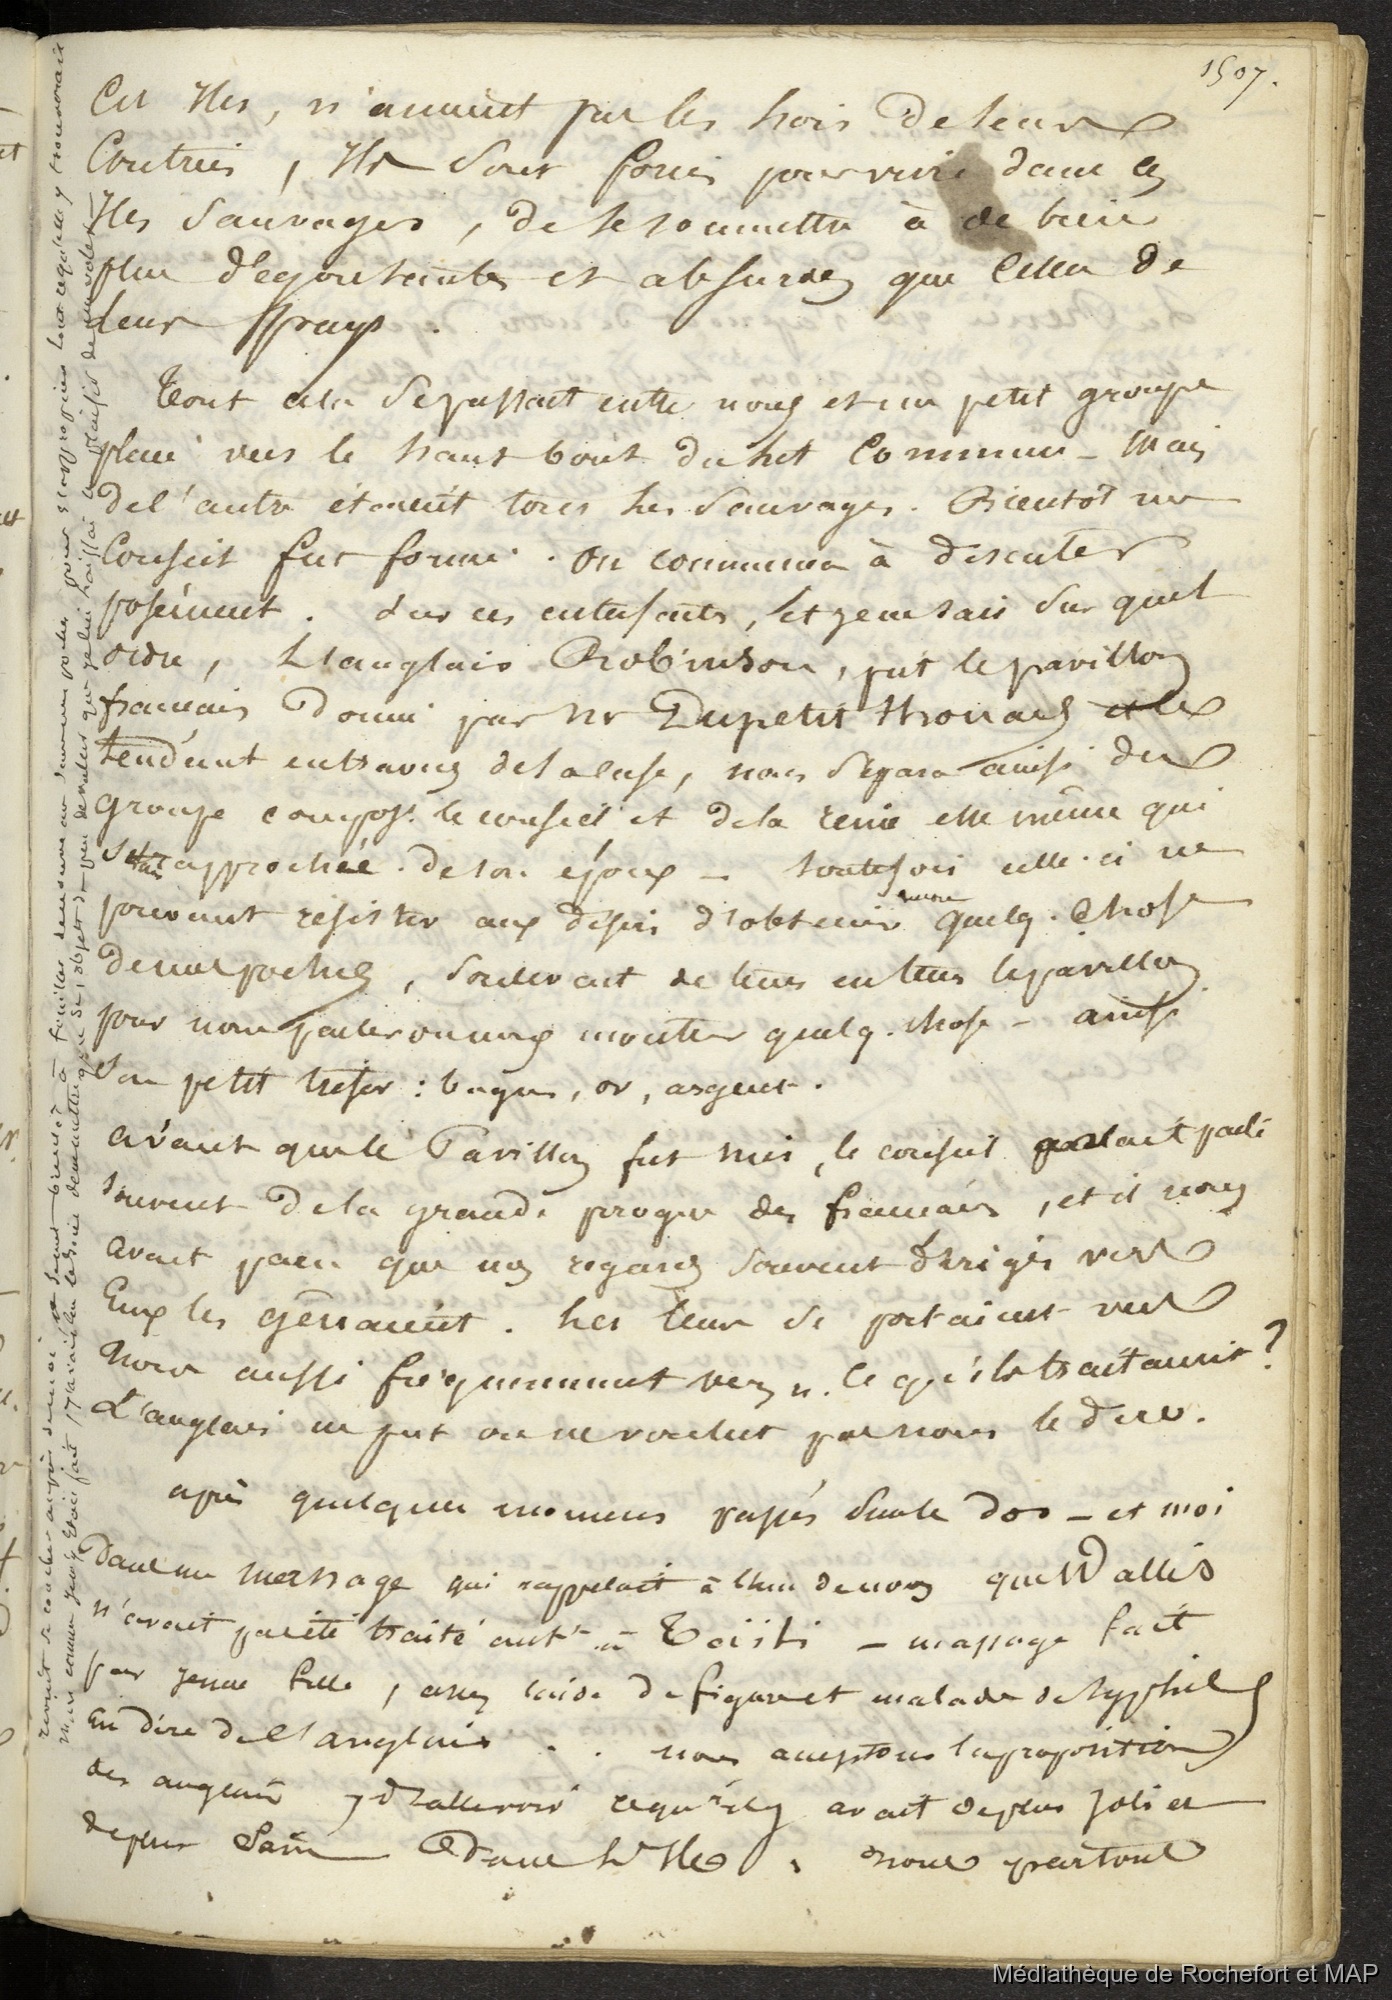 1507.
Ces Iles, n'aiment pas les lois de leurs
Contrées, Ils sont forcés pour vivre dans ces
Iles sauvages, de se soumettre à de bien
plus dégoutantes et absurdes que celles de
leurs pays.
Tout cela se passait entre nous et un petit groupe
placé vers le haut bout du lit commun - Mais
de l'autre étaient tous les sauvages. Bientôt un
Conseil fut formé. On commença à discuter
posément. Sur ces entrefaits, et je ne sais sur quel
ordre, L'anglais Robinson, prit le pavillon
français donné par Mr Dupetit Thouars et le
tendant en travers de la case, nous sépara ainsi du
groupe compos. le conseil et de la reine elle même qui
s'était rapprochée de son époux - Toutefois celle-ci ne
pouvant résister aux désirs d'obtenir encore quelq. chose
de nos poches, soulevait de tems en tems le pavillon
pour nous parler ou nous montrer quelq. chose - ainsi
Son petit trésor : bagues, or, argent.
avant que le Pavillon fut mis, le conseil parlait
souvent de la grande pirogue des français, et il nous
avait paru que nos regards souvent dirigés vers
Eux les gênaient. Les leurs se portaient vers
Nous aussi fréquemment. Ce qu'ils traitaient ?
L'anglais ne put ou ne voulut pas nous le dire.
après quelques momens passés sur le dos - et moi
dans un massage qui rappelait à l'un de nous que Wallis
n'avait pas été traité autt à Taïti - massage fait
par jeune fille, assez laide de figure et malade de syphilis
au dire de l'anglais . . nous acceptons la proposition
des anglais d'aller voir ce qu'il y avait de plus joli et
de plus Sain dans l'Ile. Nous partons
revint se coucher auprès de moi et
à fouiller dans une ou dans mes poches pour s'approprier tout ce qu'elle y trouverait